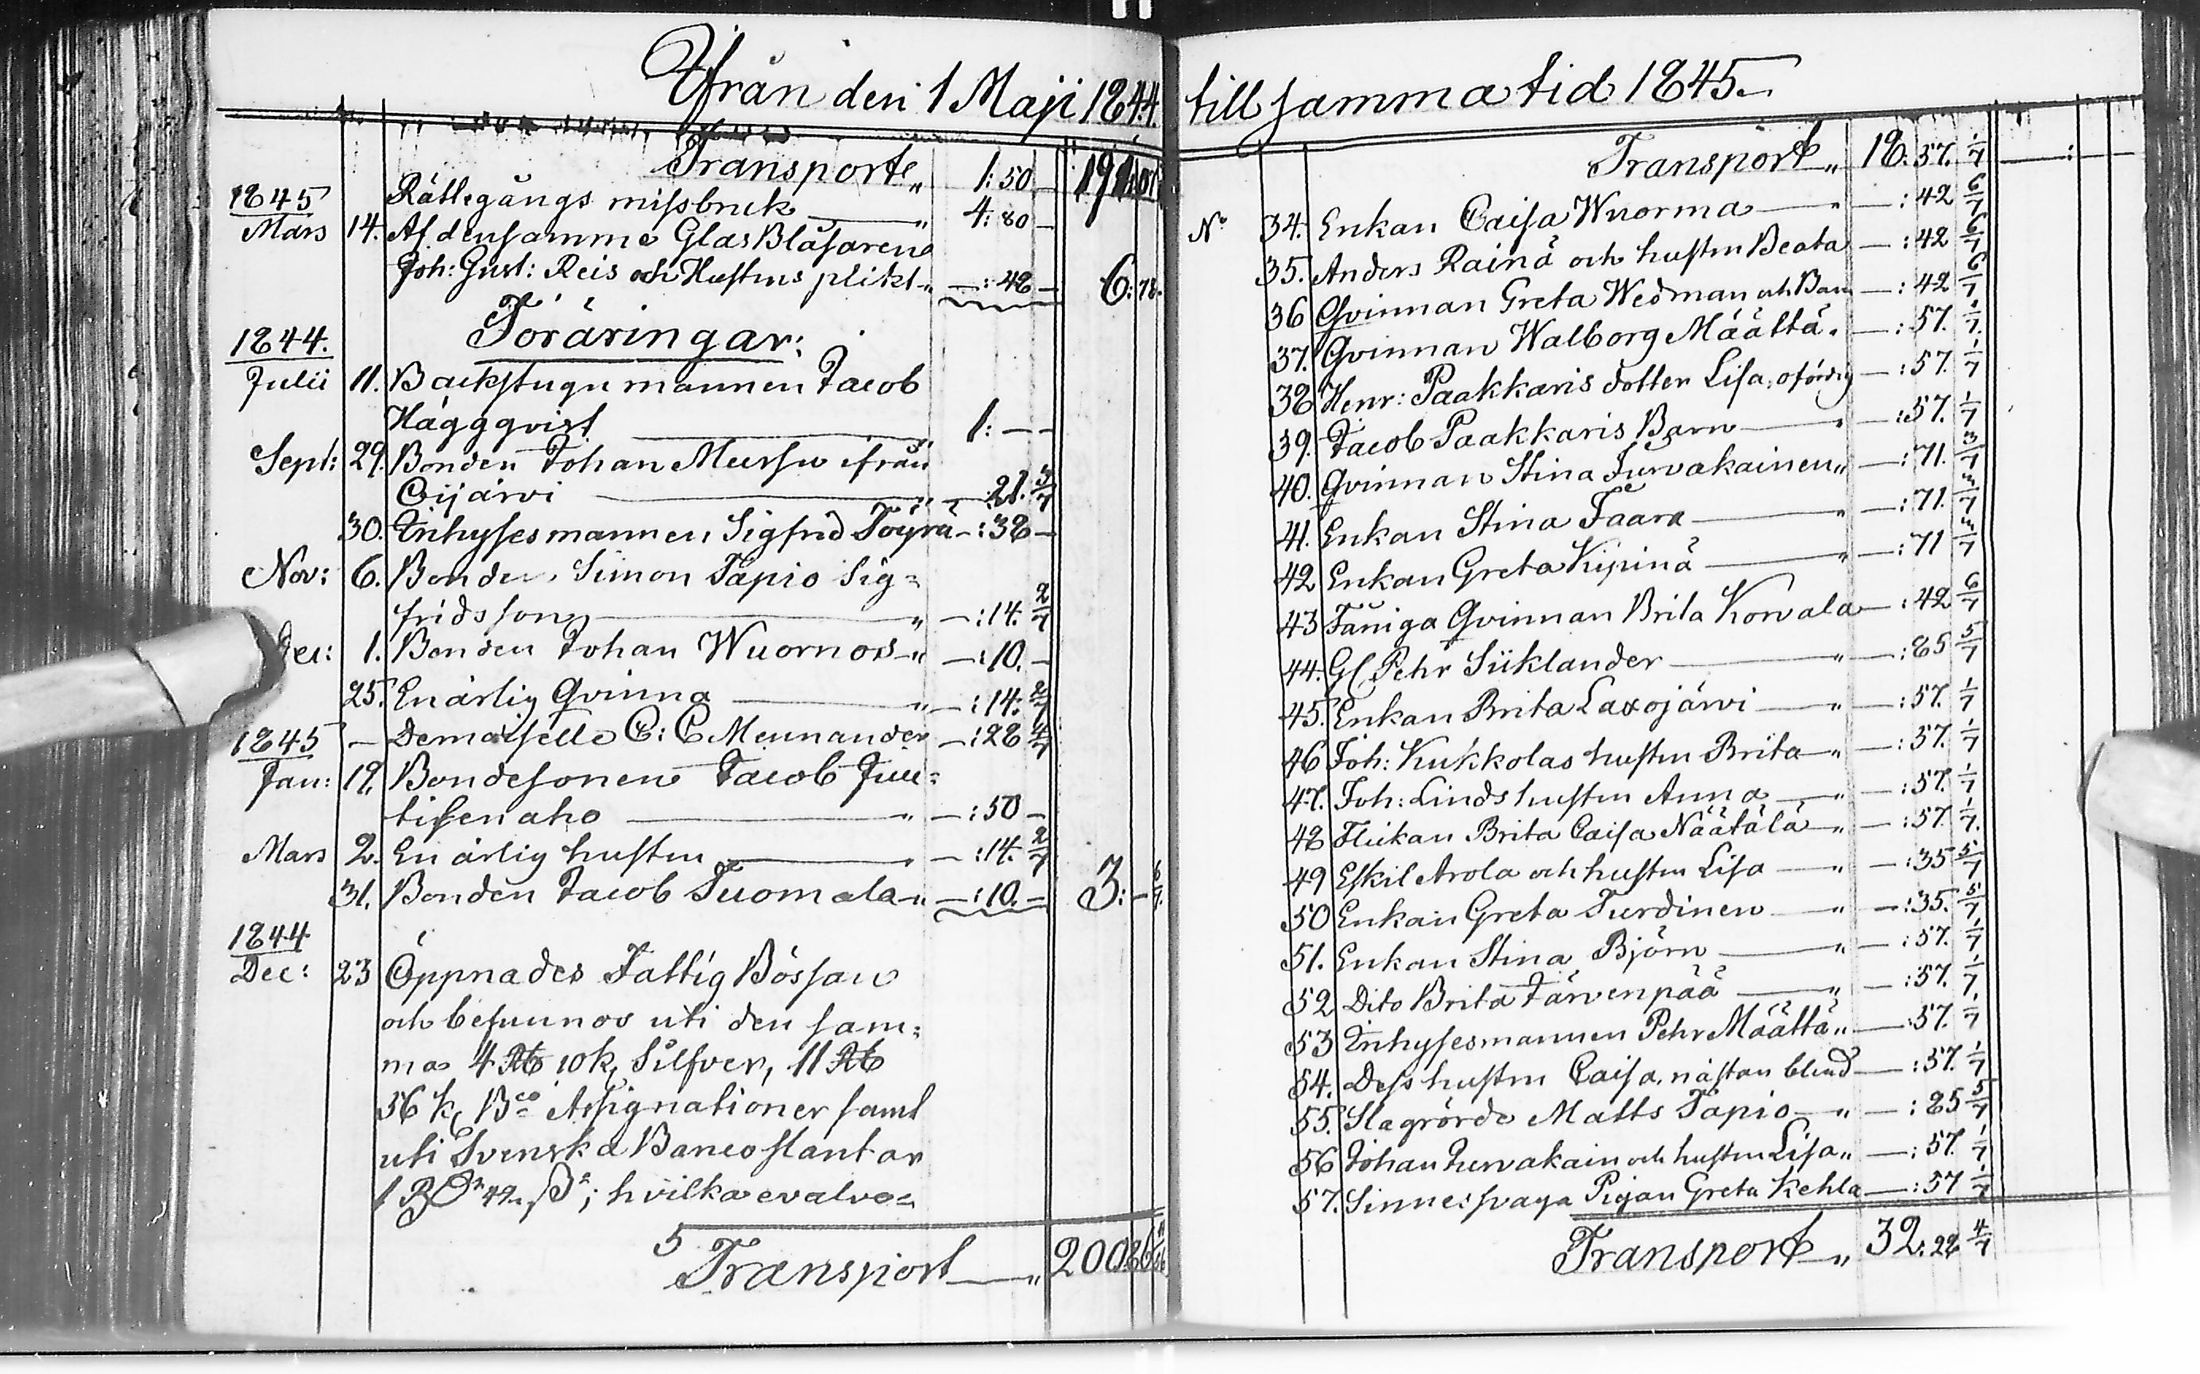 Ifrån den 1 Maji 1844.
Transport „ 1: 50 —
1845
Rättegångs missbruk — „ 4: 80 —
Mars 14. Af densamme Glas Blåsaren
Joh: Gust: Reis och Hustrus plikt „ — : 48 — 6: 78.
Föräringar:
1844.
Julii 11. Backstugu mannen Jacob
Häggqvist — 1: — —
Sept: 29. Bonden Johan Mursu ifrån
Oijärvi — „ — 21. 3/7
30. Inhysesmannen Sigfrid Töyrä — : 38 —
Nov: 6. Bonden Simon Tapio Sig=
fridsson — „ — : 14. 2/7
Dec: 1. Bonden Johan Wuornos „ — : 10. —
25. En ärlig Qvinna — „ — : 14. 2/7
1845 — Demoiselle C: C Meunander — : 28 4/7
Jan: 19. Bondesonen Jacob Juu=
tisenaho — „ — : 50 —
Mars 2. En ärlig hustru — „ — : 14. 2/7
31. Bonden Jacob Tuomala „ — : 10. — 3: — 6/7.
1844
Dec: 23 Öppnades Fattig Bössan
och befunnos uti den sam=
ma 4 Rb 10 k, Silfver, 11 Rb
56 k, Bco Assignationer samt
uti Svenska Banco slantar
hvilka evalve=
5
Transport — „ 200.
till samma tid 1845.
Transport „ 18. 57. 1/7 — : —
No 34. Enkan Caisa Wuorma — „ — : 42 6/7
35. Anders Rainä och hustru Beata — : 42 6/7
36 Qvinnan Greta Wedman och Barn — : 42 6/7
37. Qvinnan Walborg Määttä „ — : 57. 1/7.
38 Henr: Paakkaris dotter Lisa, ofärdig — : 57. 1/7
39. Jacob Paakkaris Barn — „ — : 57. 1/7
40. Qvinnan Stina Jurvakainen „ — : 71. 3/7
41. Enkan Stina Taara — „ — : 71. 3/7
42 Enkan Greta Kipinä — „ — : 71 3/7
43 Fåniga Qvinnan Brita Korvala — : 42 6/7
44. Gl Pehr Siiklander — „ — : 85 5/7
45. Enkan Brita Laxojärvi — „ — : 57. 1/7
46 Joh: Kukkolas hustru Brita — „ — : 57. 1/7
47. Joh: Linds hustru Anna — „ — : 57. 1/7
48 Flickan Brita Caisa Näätälä — „ — : 57. 1/7.
49 Eskil Arola och hustru Lisa — „ — : 35 5/7
50 Enkan Greta Turdinen — „ — : 35. 5/7
51. Enkan Stina Björn — „ — : 57. 1/7
52 Dito Brita Järvenpää — „ — : 57. 1/7
53 Inhysesmannen Pehr Määttä „ — : 57. 1/7
54. Dess hustru Caisa, nästan blind — : 57. 1/7
55. Slagrörde Matts Tapio — „ — : 85 5/7
56 Johan Jurvakain och hustru Lisa „ — : 57. 1/7
57. Sinnessvaga Pigan Greta Kehla — : 57 1/7
Transport „ 32. 28 4/7